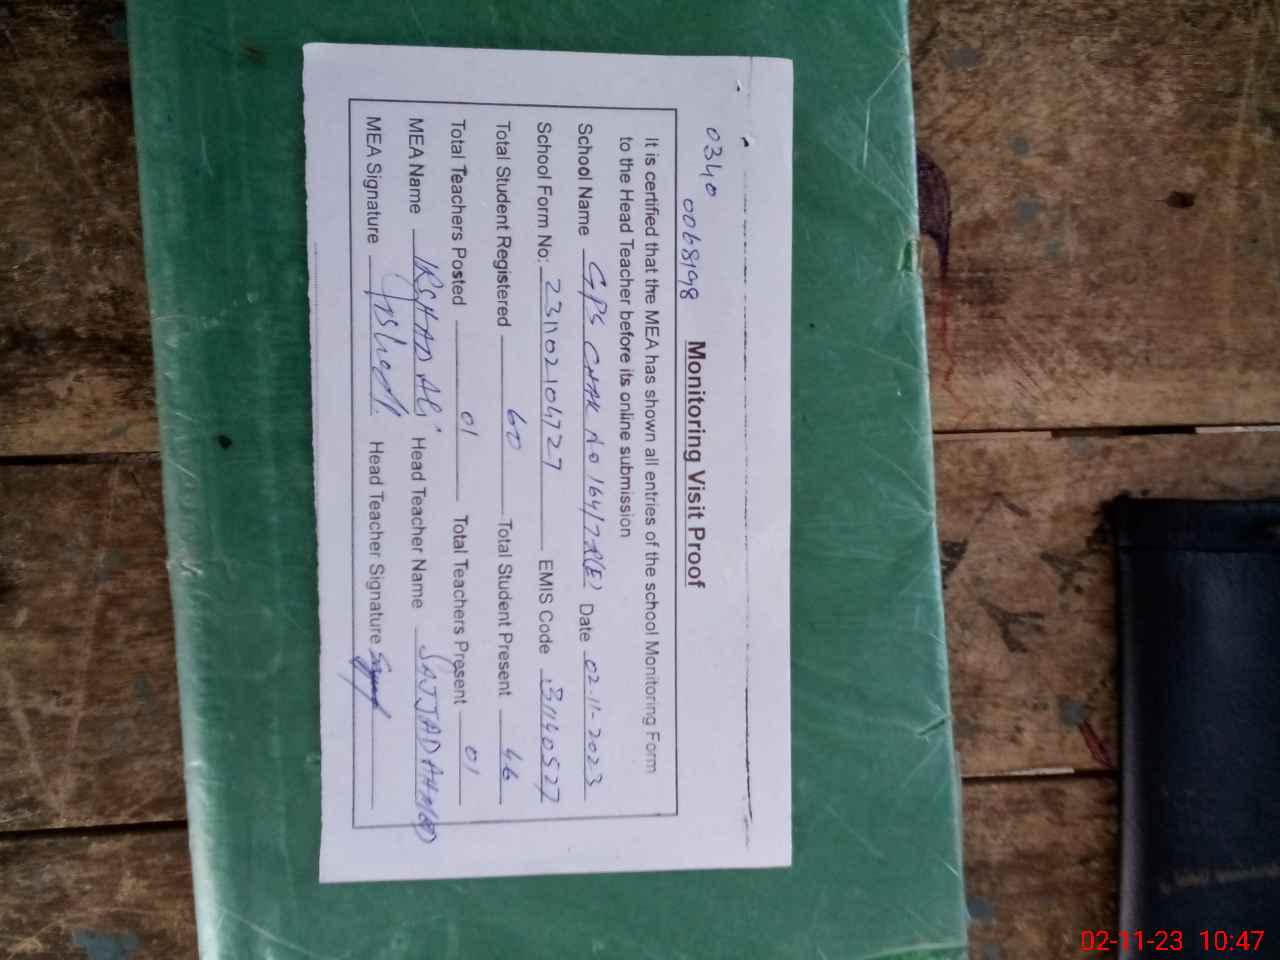 0340 0068198
Monitoring Visit Proof
It is certified that the MEA has shown all entries of the school Monitoring Form
to the Head Teacher before its online submission
School Name GPS CHAK No 164/7R(E) Date 02-11-2023
School Form No: 231102104727 EMIS Code 31140527
Total Student Registered 60 Total Student Present 46
Total Teachers Posted 01 Total Teachers Present 01
MEA Name IRSHAD Ali Head Teacher Name SAJJAD AHMAD
MEA Signature Irshad Head Teacher Signature
02-11-23 10:47